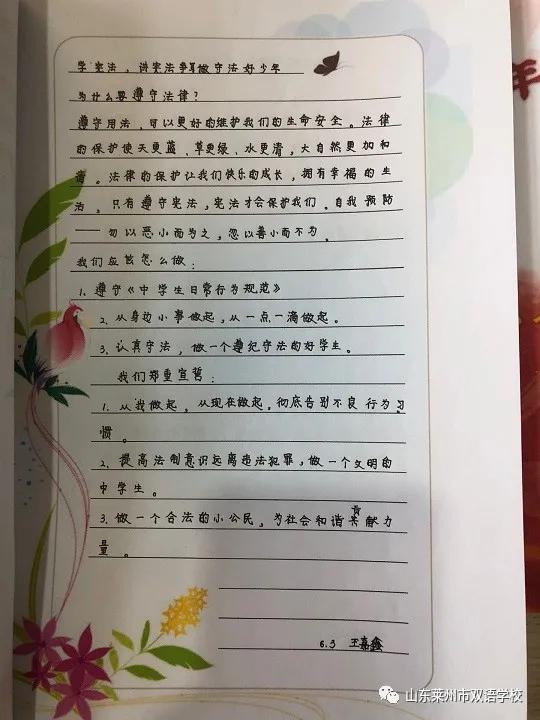 学宪法，讲宪法争做守法好少年
为什么要遵守法律？
遵守用法，可以更好的维护我们的生命安全。法律
的保护使天更蓝、草更绿、水更清，大自然更加和
谐。法律的保护让我们快乐的成长，拥有幸福的生
活，只有遵守宪法，宪法才会保护我们。自我预防
——勿以恶小而为之，忽以善小而不为。
我们应该怎么做：
1. 遵守《中学生日常行为规范》
2. 从身边小事做起，从一点一滴做起。
3. 认真守法，做一个遵纪守法的好学生。
我们郑重宣誓：
1. 从我做起，从现在做起，彻底告别不良行为习
惯。
2. 提高法制意识远离违法犯罪，做一个文明的
中学生。
3. 做一个合法的小公民，为社会和谐贡献力
量。
6.3 王嘉鑫
年
山东莱州市双语学校